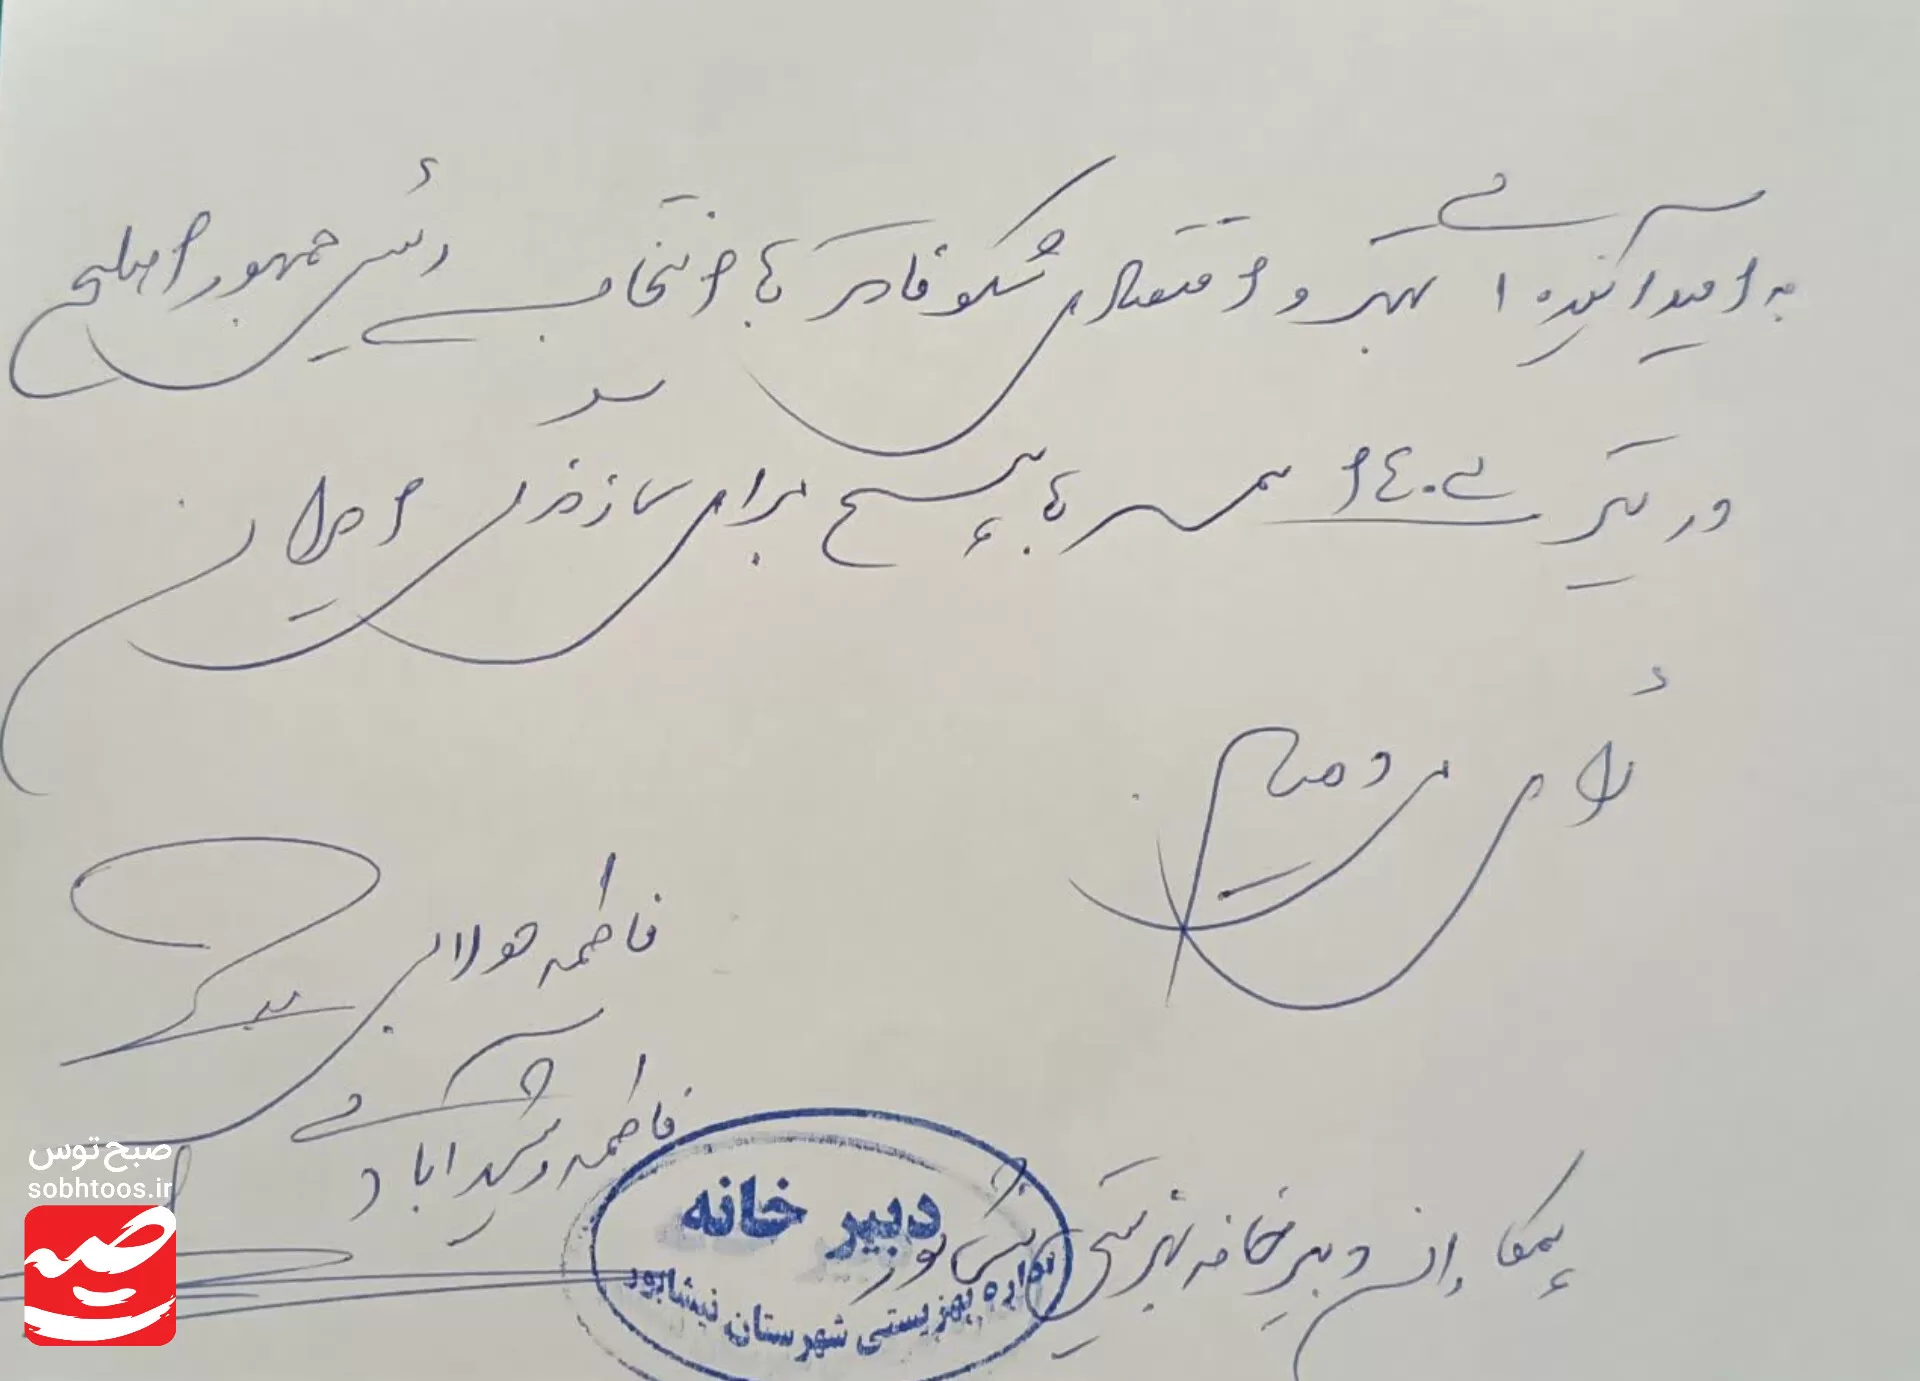 به امید آینده ای بهتر و اقتصادی شکوفاتر با انتخاب رئیس جمهور اصلح
در تیر ۱۴۰۳ همه با بسیج برای سازندگی ایران
رأی مردمیم
فاطمه مولایی
فاطمه رشیدآبادی
همکاران دبیرخانه بهزیستی نیشابور
دبیر خانه
اداره بهزیستی شهرستان نیشابور
صبح توس
sobhtoos.ir